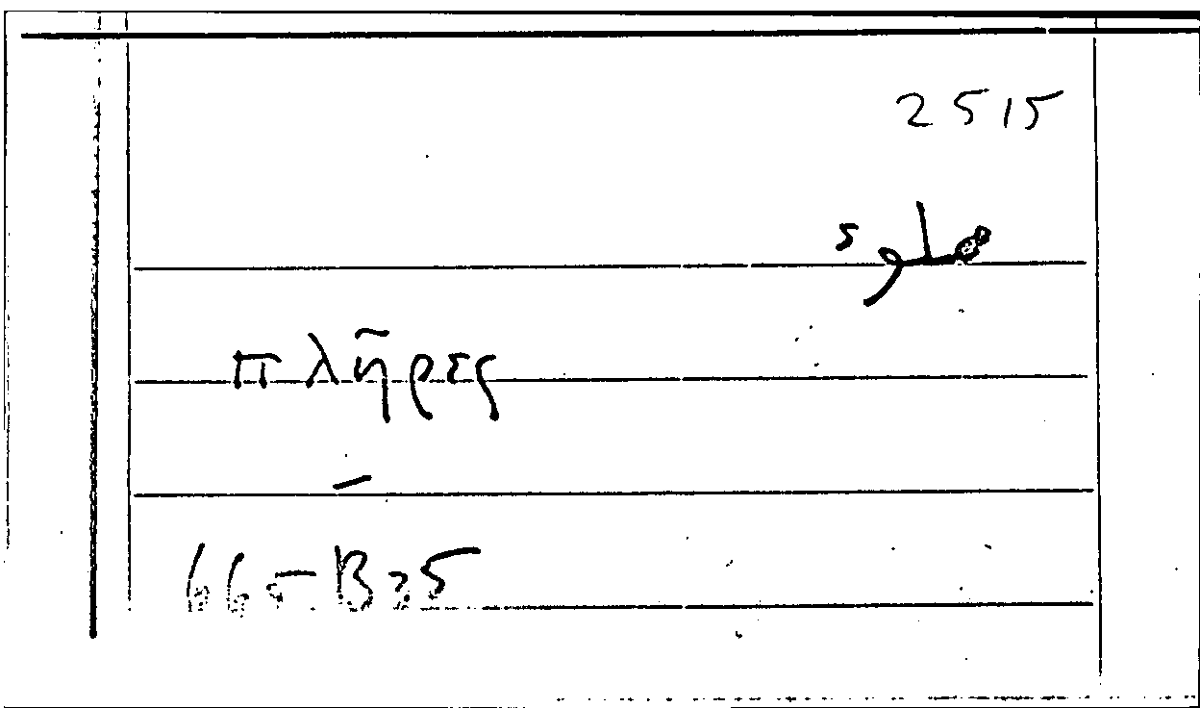 2515
مملوء
πλῆρες
–
665 B 35